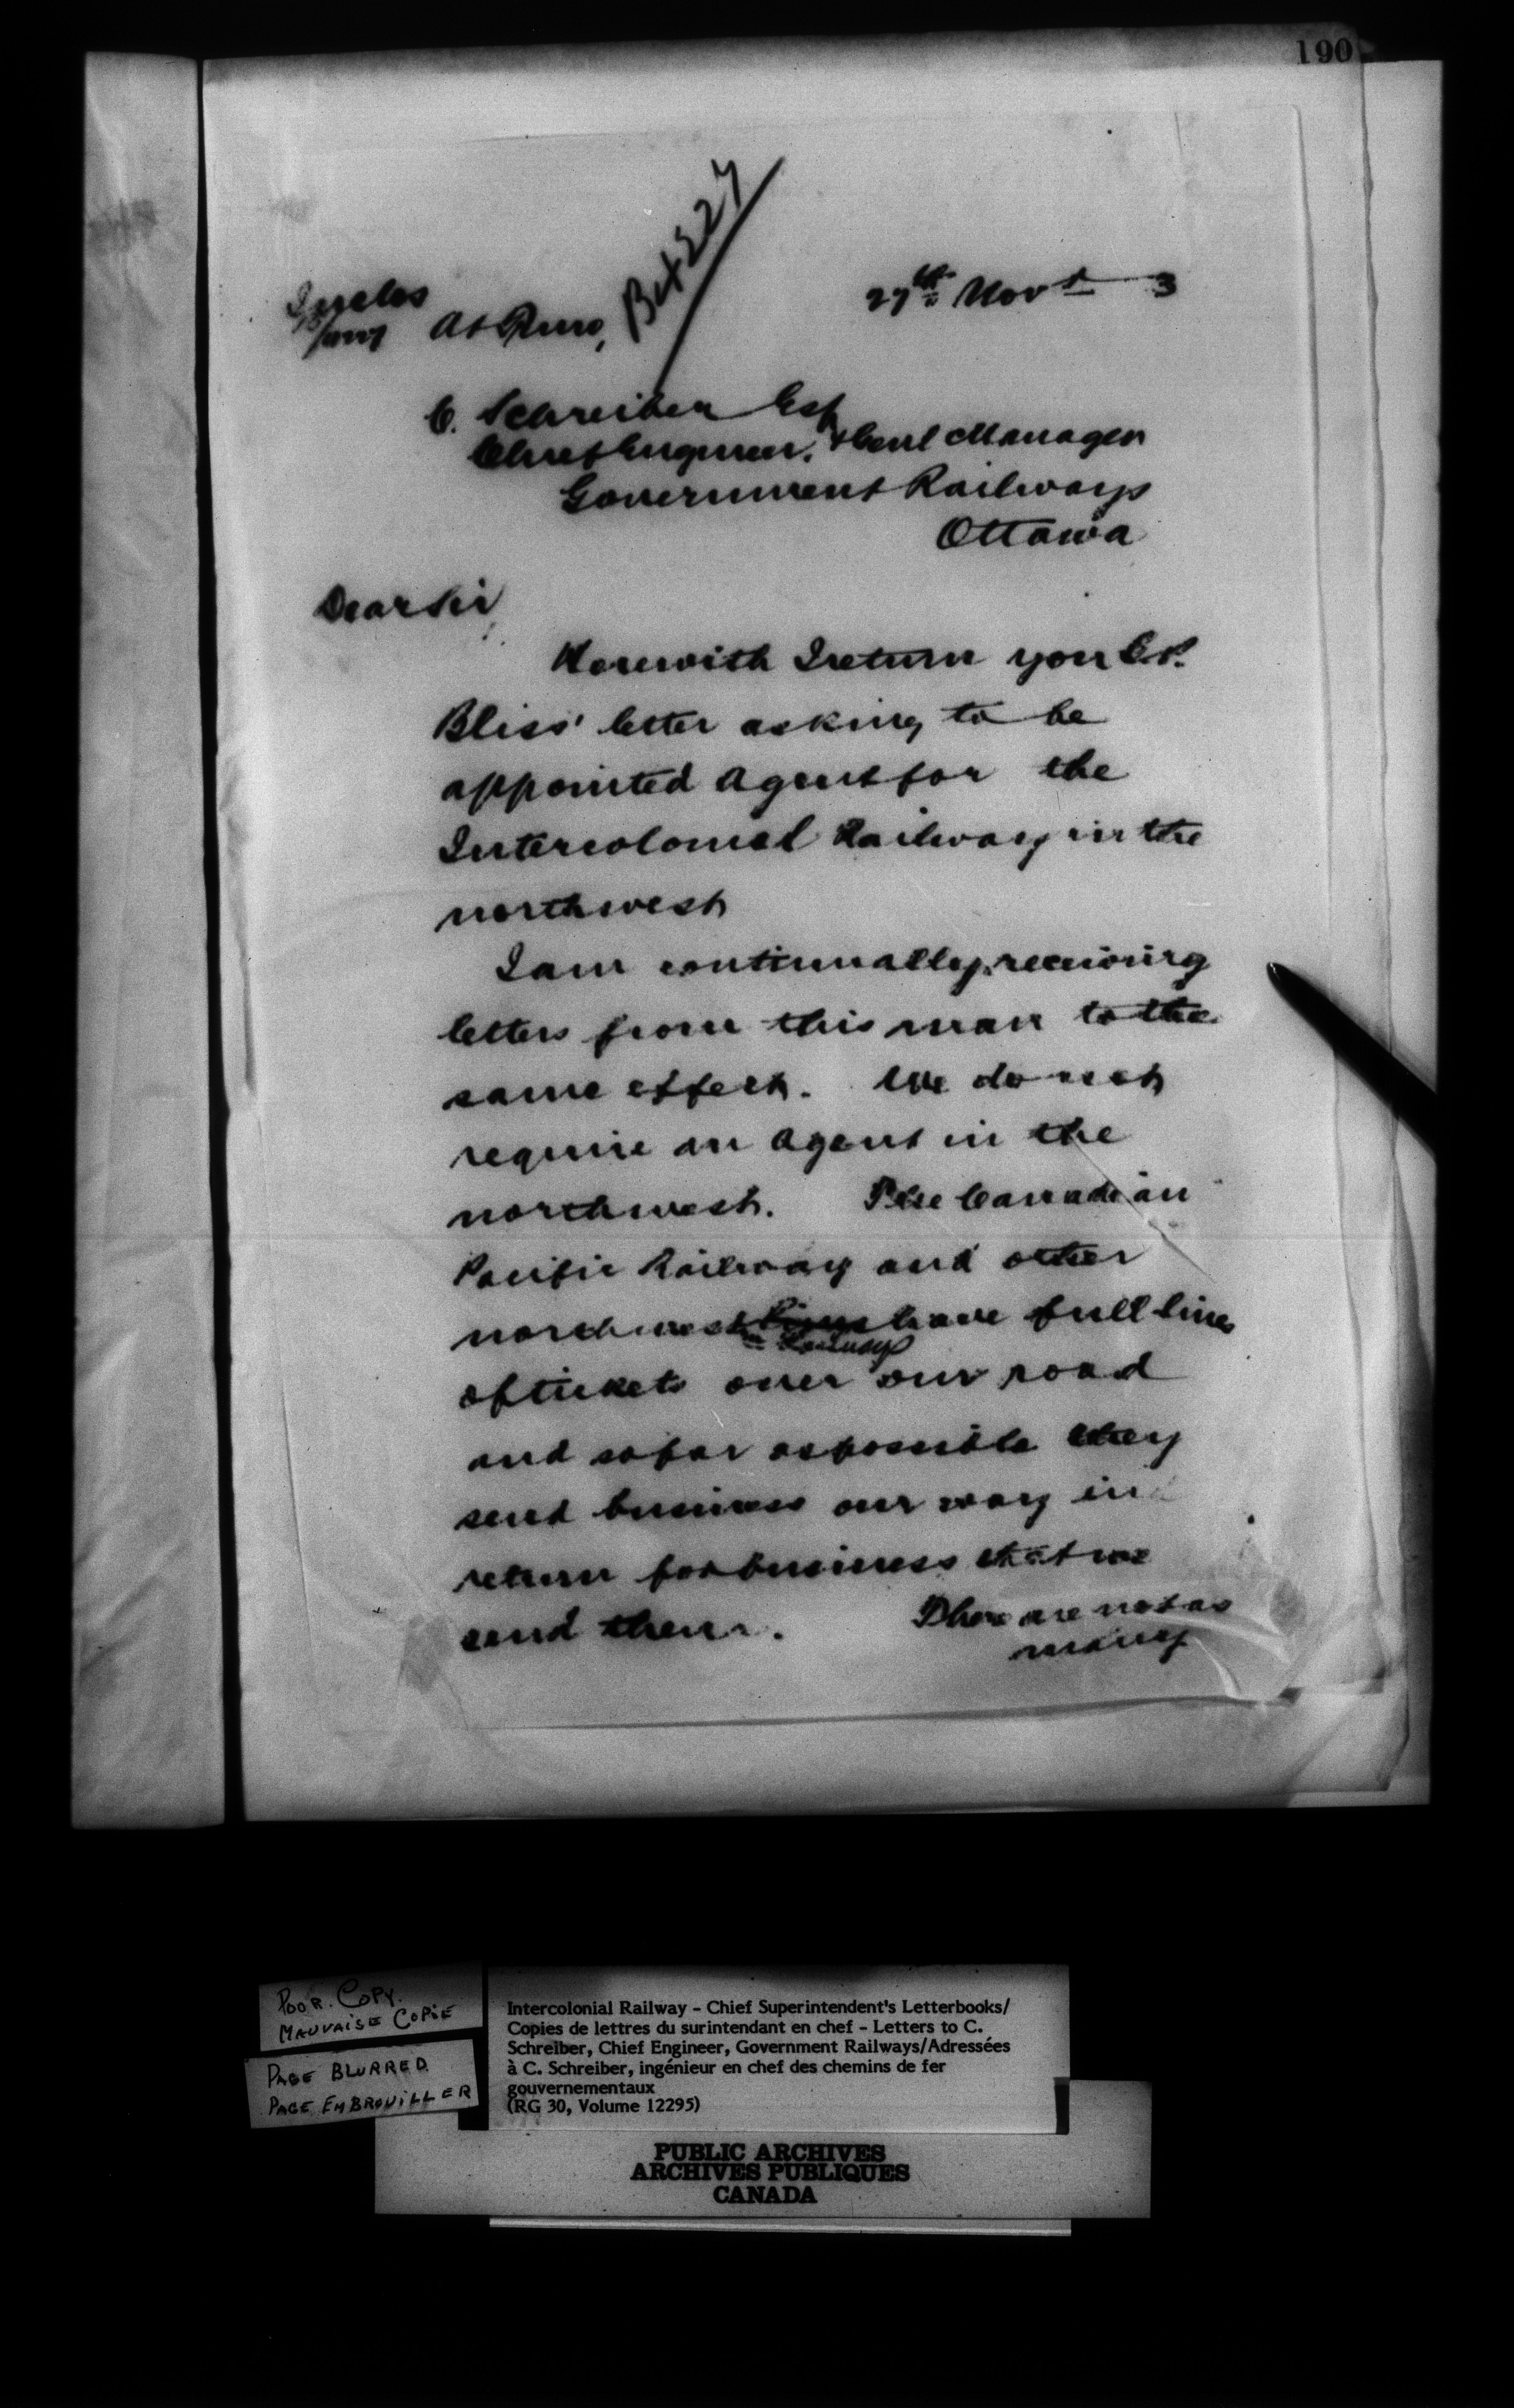 190
27th Novr 3
C. Schreiber Esq
Chief Engineer, & Genl Manager
Government Railways
Ottawa
Dear Sir,
Herewith I return you
Bliss' letter asking to be
appointed Agent for the
Intercolonial Railway in the
northwest
I am continually receiving
letters from this man to the
same effect. We do not
require an Agent in the
northwest. The Canadian
Pacific Railway and other
northwest have full lines
Railways
of tickets over our road
and so far as possible they
send business our way in
return for business that we
send them. There are not as
many
POOR. COPY.
MAUVAISE COPIE
PAGE BLURRED
PAGE EMBROUILLER
Intercolonial Railway – Chief Superintendent's Letterbooks/
Copies de lettres du surintendant en chef – Letters to C.
Schreiber, Chief Engineer, Government Railways/Adressées
à C. Schreiber, ingénieur en chef des chemins de fer
gouvernementaux
(RG 30, Volume 12295)
PUBLIC ARCHIVES
ARCHIVES PUBLIQUES
CANADA